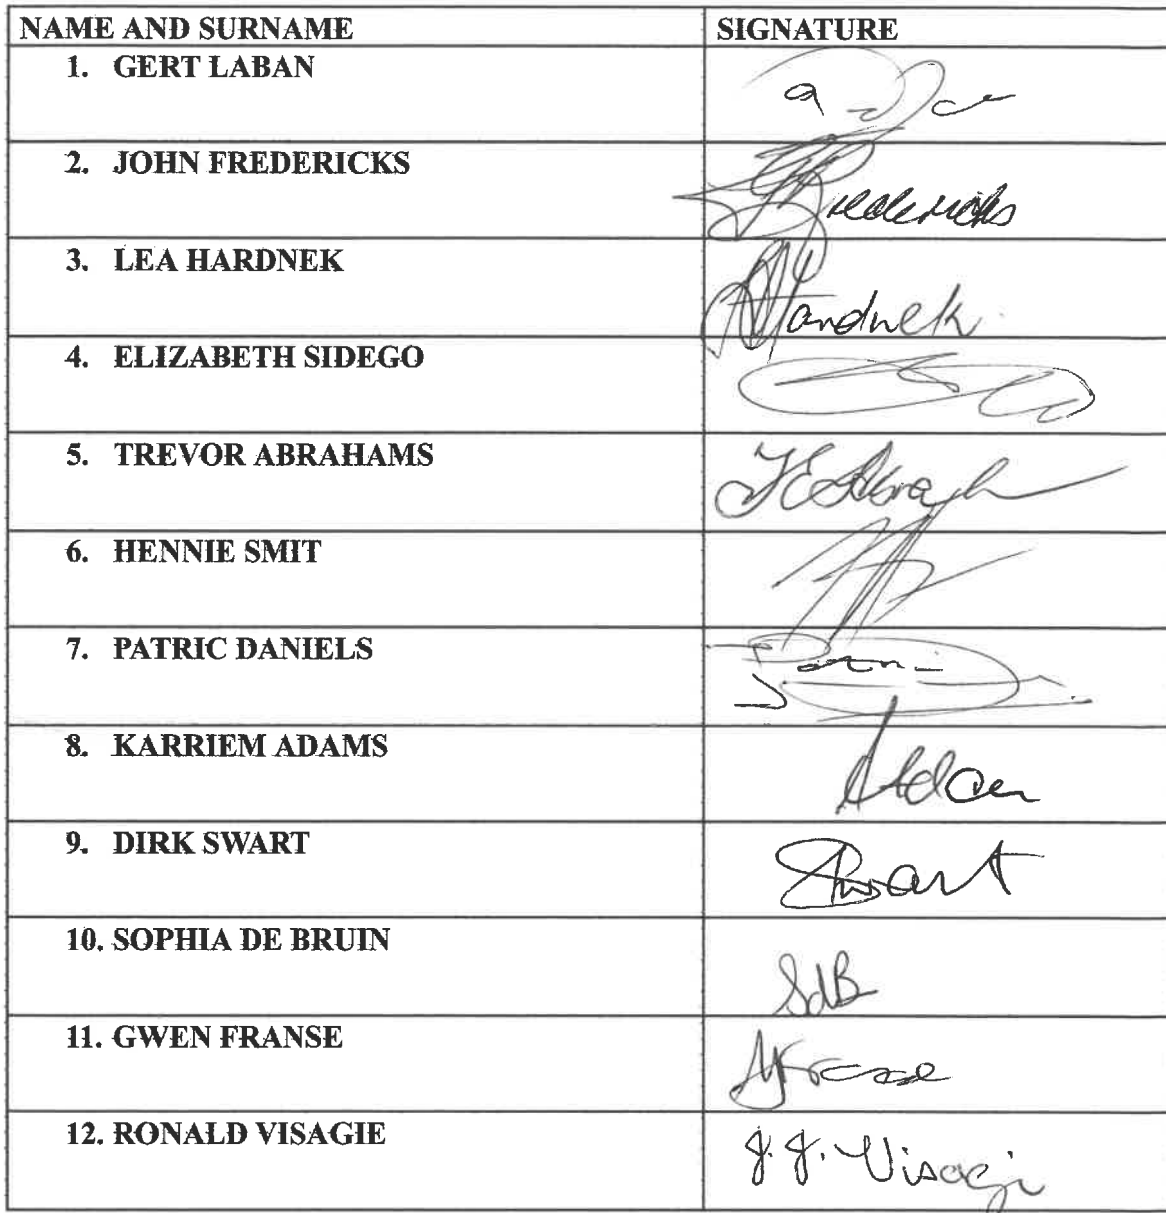 NAME AND SURNAME SIGNATURE
1. GERT LABAN
2. JOHN FREDERICKS Fredericks
3. LEA HARDNEK Hardnek
4. ELIZABETH SIDEGO
5. TREVOR ABRAHAMS
6. HENNIE SMIT
7. PATRIC DANIELS
8. KARRIEM ADAMS
9. DIRK SWART Swart
10. SOPHIA DE BRUIN SdB
11. GWEN FRANSE
12. RONALD VISAGIE J.J. Visagi